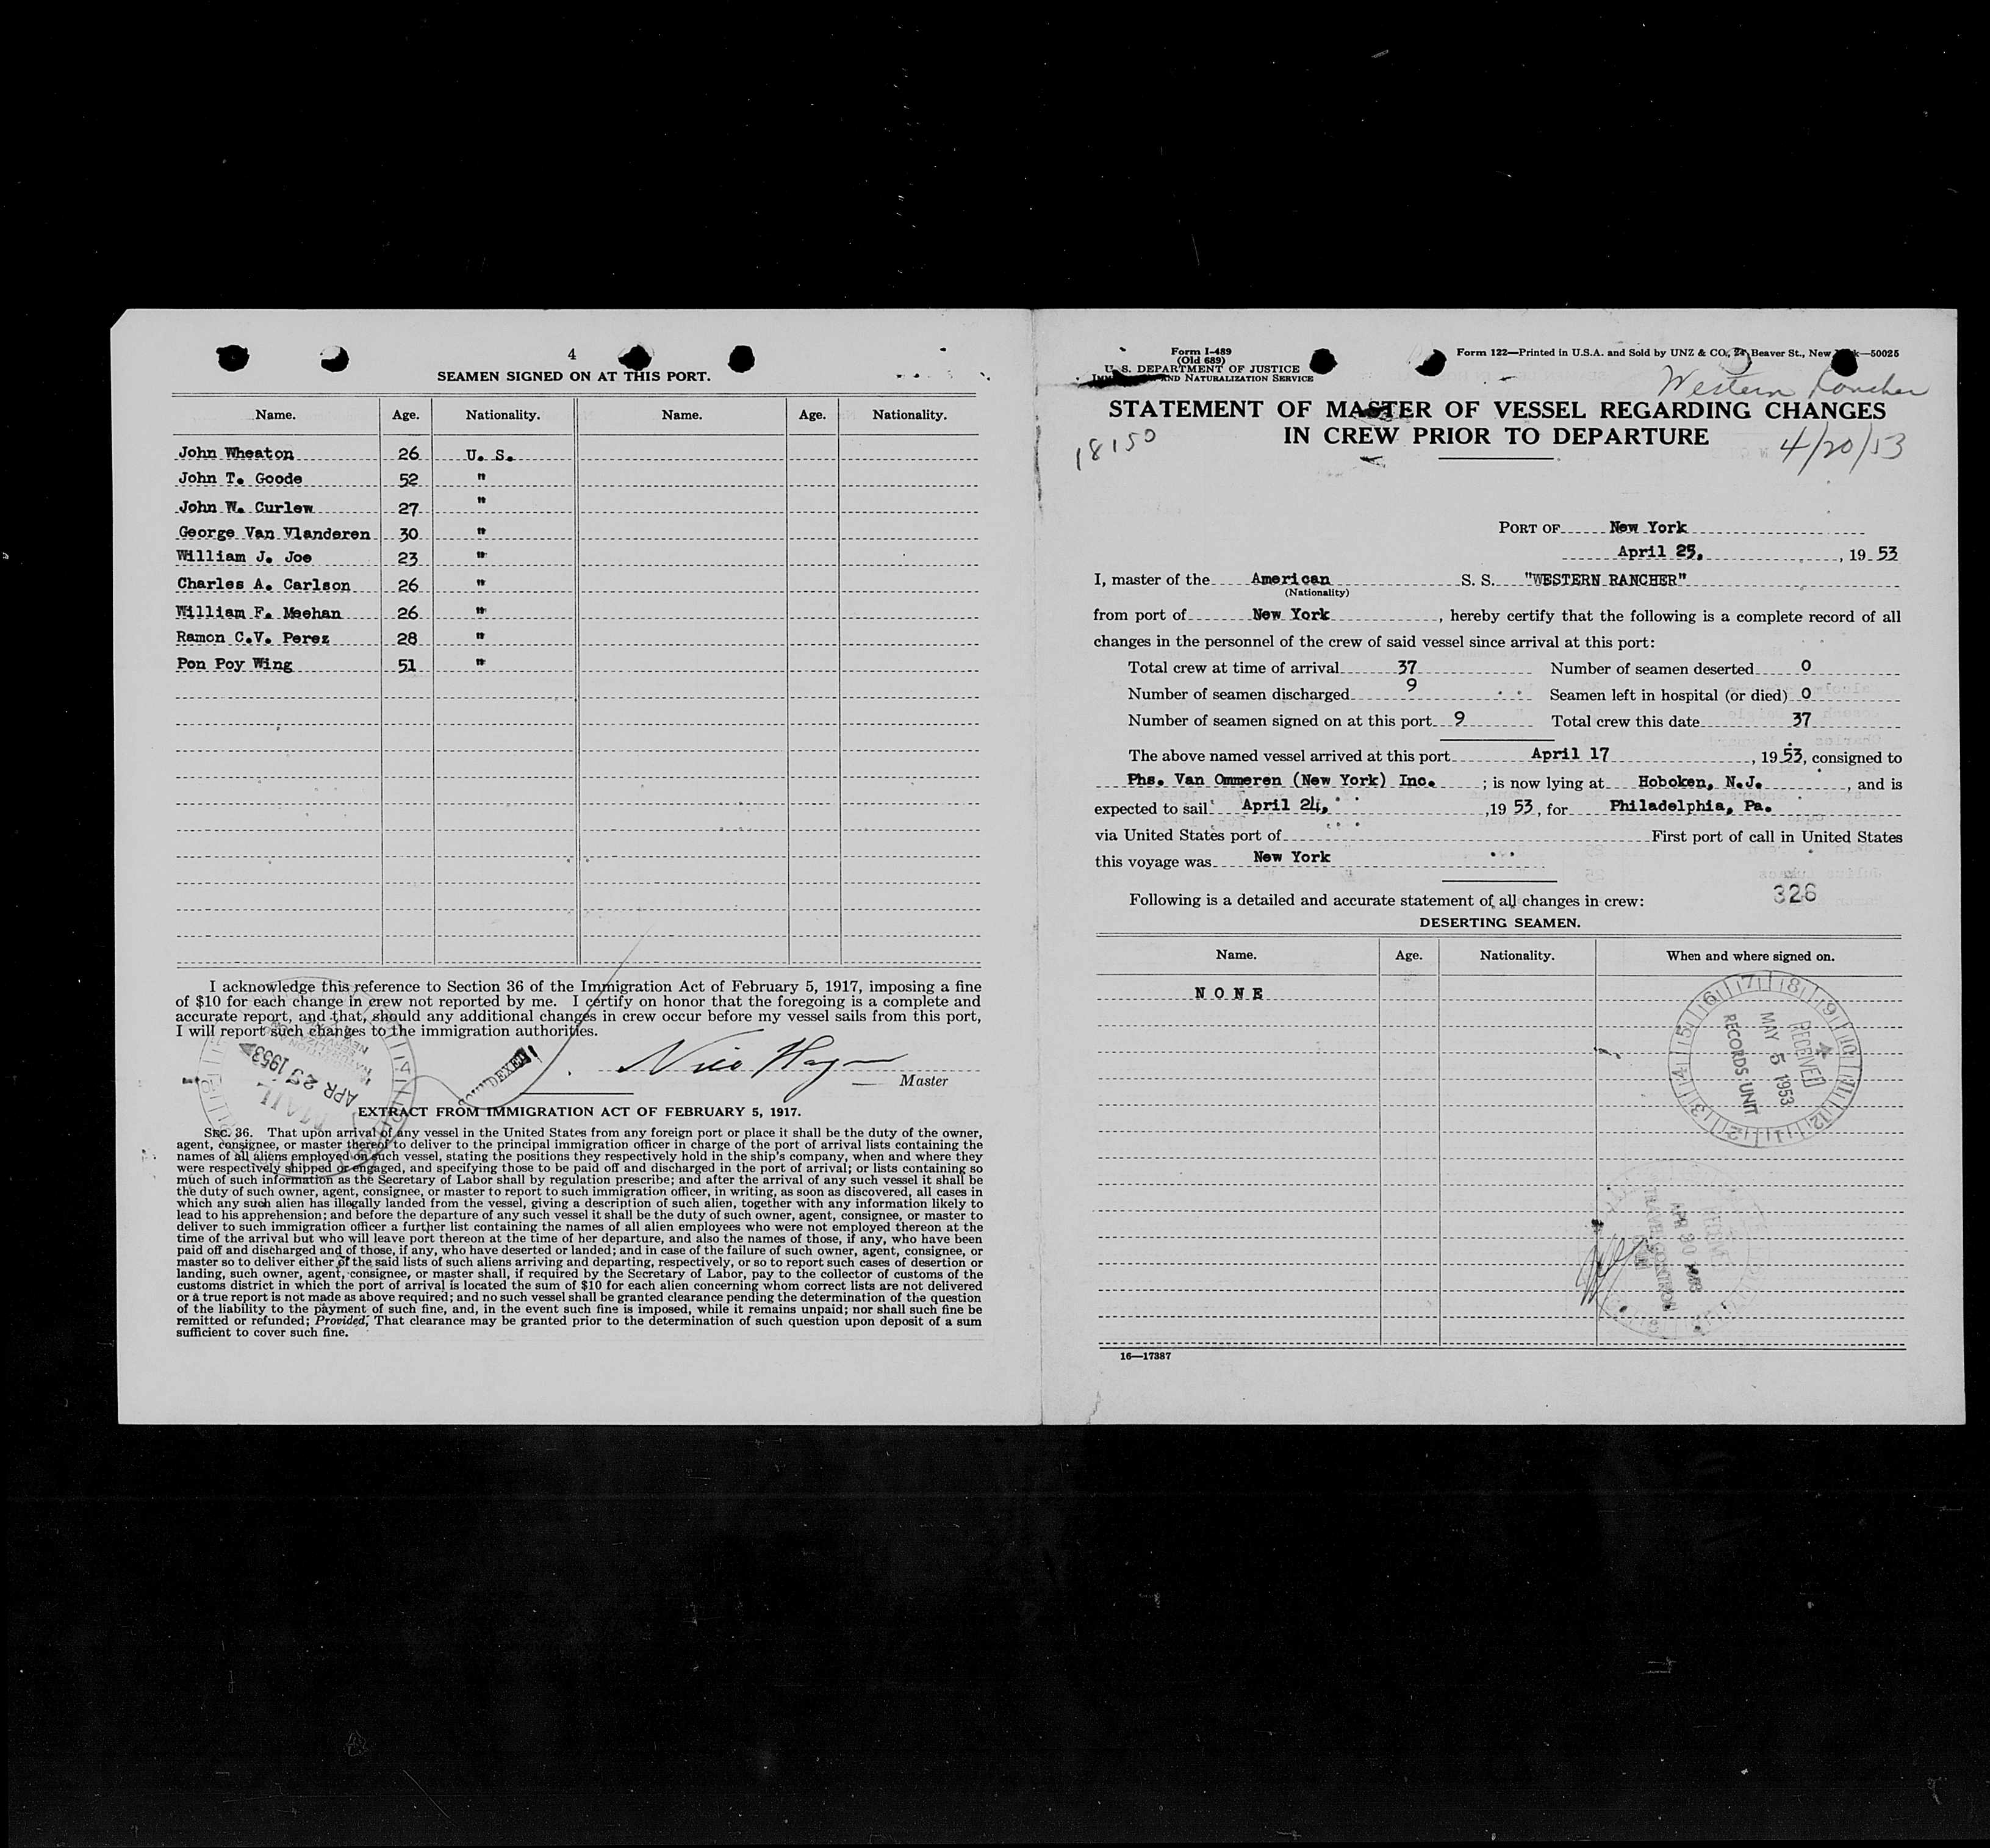 4
SEAMEN SIGNED ON AT THIS PORT.
Name. Age. Nationality. Name. Age. Nationality.
John Wheaton 26 U. S.
John T. Goode 52 "
John W. Curlew 27 "
George Van Vlanderen 30 "
William J. Joe 23 "
Charles A. Carlson 26 "
William F. Meehan 26 "
Ramon C.V. Perez 28 "
Pon Poy Wing 51 "
I acknowledge this reference to Section 36 of the Immigration Act of February 5, 1917, imposing a fine
of $10 for each change in crew not reported by me. I certify on honor that the foregoing is a complete and
accurate report, and that, should any additional changes in crew occur before my vessel sails from this port,
I will report such changes to the immigration authorities.
APR 25 1953
MAIL
Master
EXTRACT FROM IMMIGRATION ACT OF FEBRUARY 5, 1917.
SEC. 36. That upon arrival of any vessel in the United States from any foreign port or place it shall be the duty of the owner,
agent, consignee, or master thereof to deliver to the principal immigration officer in charge of the port of arrival lists containing the
names of all aliens employed on such vessel, stating the positions they respectively hold in the ship's company, when and where they
were respectively shipped or engaged, and specifying those to be paid off and discharged in the port of arrival; or lists containing so
much of such information as the Secretary of Labor shall by regulation prescribe; and after the arrival of any such vessel it shall be
the duty of such owner, agent, consignee, or master to report to such immigration officer, in writing, as soon as discovered, all cases in
which any such alien has illegally landed from the vessel, giving a description of such alien, together with any information likely to
lead to his apprehension; and before the departure of any such vessel it shall be the duty of such owner, agent, consignee, or master to
deliver to such immigration officer a further list containing the names of all alien employees who were not employed thereon at the
time of the arrival but who will leave port thereon at the time of her departure, and also the names of those, if any, who have been
paid off and discharged and of those, if any, who have deserted or landed; and in case of the failure of such owner, agent, consignee, or
master so to deliver either of the said lists of such aliens arriving and departing, respectively, or so to report such cases of desertion or
landing, such owner, agent, consignee, or master shall, if required by the Secretary of Labor, pay to the collector of customs of the
customs district in which the port of arrival is located the sum of $10 for each alien concerning whom correct lists are not delivered
or a true report is not made as above required; and no such vessel shall be granted clearance pending the determination of the question
of the liability to the payment of such fine, and, in the event such fine is imposed, while it remains unpaid; nor shall such fine be
remitted or refunded; Provided, That clearance may be granted prior to the determination of such question upon deposit of a sum
sufficient to cover such fine.
Form I-489
(Old 689)
U. S. DEPARTMENT OF JUSTICE
AND NATURALIZATION SERVICE
Form 122—Printed in U.S.A. and Sold by UNZ & CO., 24 Beaver St., New —50025
Western Rancher
STATEMENT OF MASTER OF VESSEL REGARDING CHANGES
IN CREW PRIOR TO DEPARTURE
18150
4/20/53
PORT OF New York
April 25, , 19 53
I, master of the American S. S. "WESTERN RANCHER"
(Nationality)
from port of New York , hereby certify that the following is a complete record of all
changes in the personnel of the crew of said vessel since arrival at this port:
Total crew at time of arrival 37 Number of seamen deserted 0
Number of seamen discharged 9 Seamen left in hospital (or died) 0
Number of seamen signed on at this port 9 Total crew this date 37
The above named vessel arrived at this port April 17 , 19 53, consigned to
Phs. Van Ommeren (New York) Inc. ; is now lying at Hoboken, N.J. , and is
expected to sail April 24, ,19 53 , for Philadelphia, Pa.
via United States port of First port of call in United States
this voyage was New York
326
Following is a detailed and accurate statement of all changes in crew:
DESERTING SEAMEN.
Name. Age. Nationality. When and where signed on.
N O N E
RECEIVED
MAY 5 1953
RECORDS UNIT
APR 30
TRAVEL CONTROL
16—17387